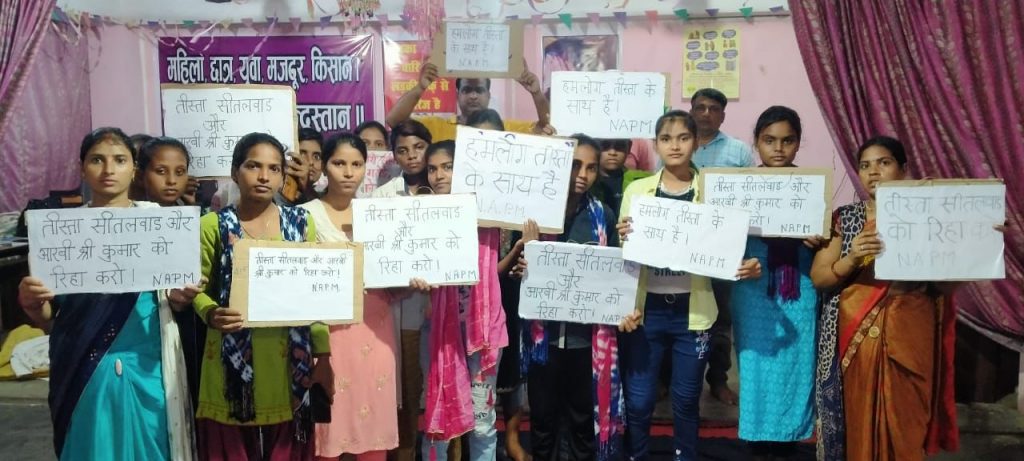 महिला, छात्र, युवा, मजदूर, किसान।
हमलोग तीस्ता
के साथ है।
N.A.P.M.
तीस्ता सीतलवाड
और
आरबी श्री कुमार को
रिहा करो
हमलोग तीस्ता के
साथ है।
NAPM
हमलोग तीस्ता
के साथ है
N.A.P.M
तीस्ता सीतलवाड और
आरबी श्री कुमार को
रिहा करो!
NAPM
तीस्ता सीतलवाड और
आरबी श्री कुमार को रिहा करो!
NAPM
तीस्ता सीतलवाड
और
आरबी श्री कुमार को
रिहा करो!
NAPM
तीस्ता सीतलवाड
और
आरबी श्री कुमार को
रिहा करो!
NAPM
हमलोग तीस्ता के
साथ है।
NAPM
तीस्ता सीतलवाड और
आरबी श्री कुमार को
रिहा करो!
NAPM
तीस्ता सीतलवाड
को रिहा क
NAPM